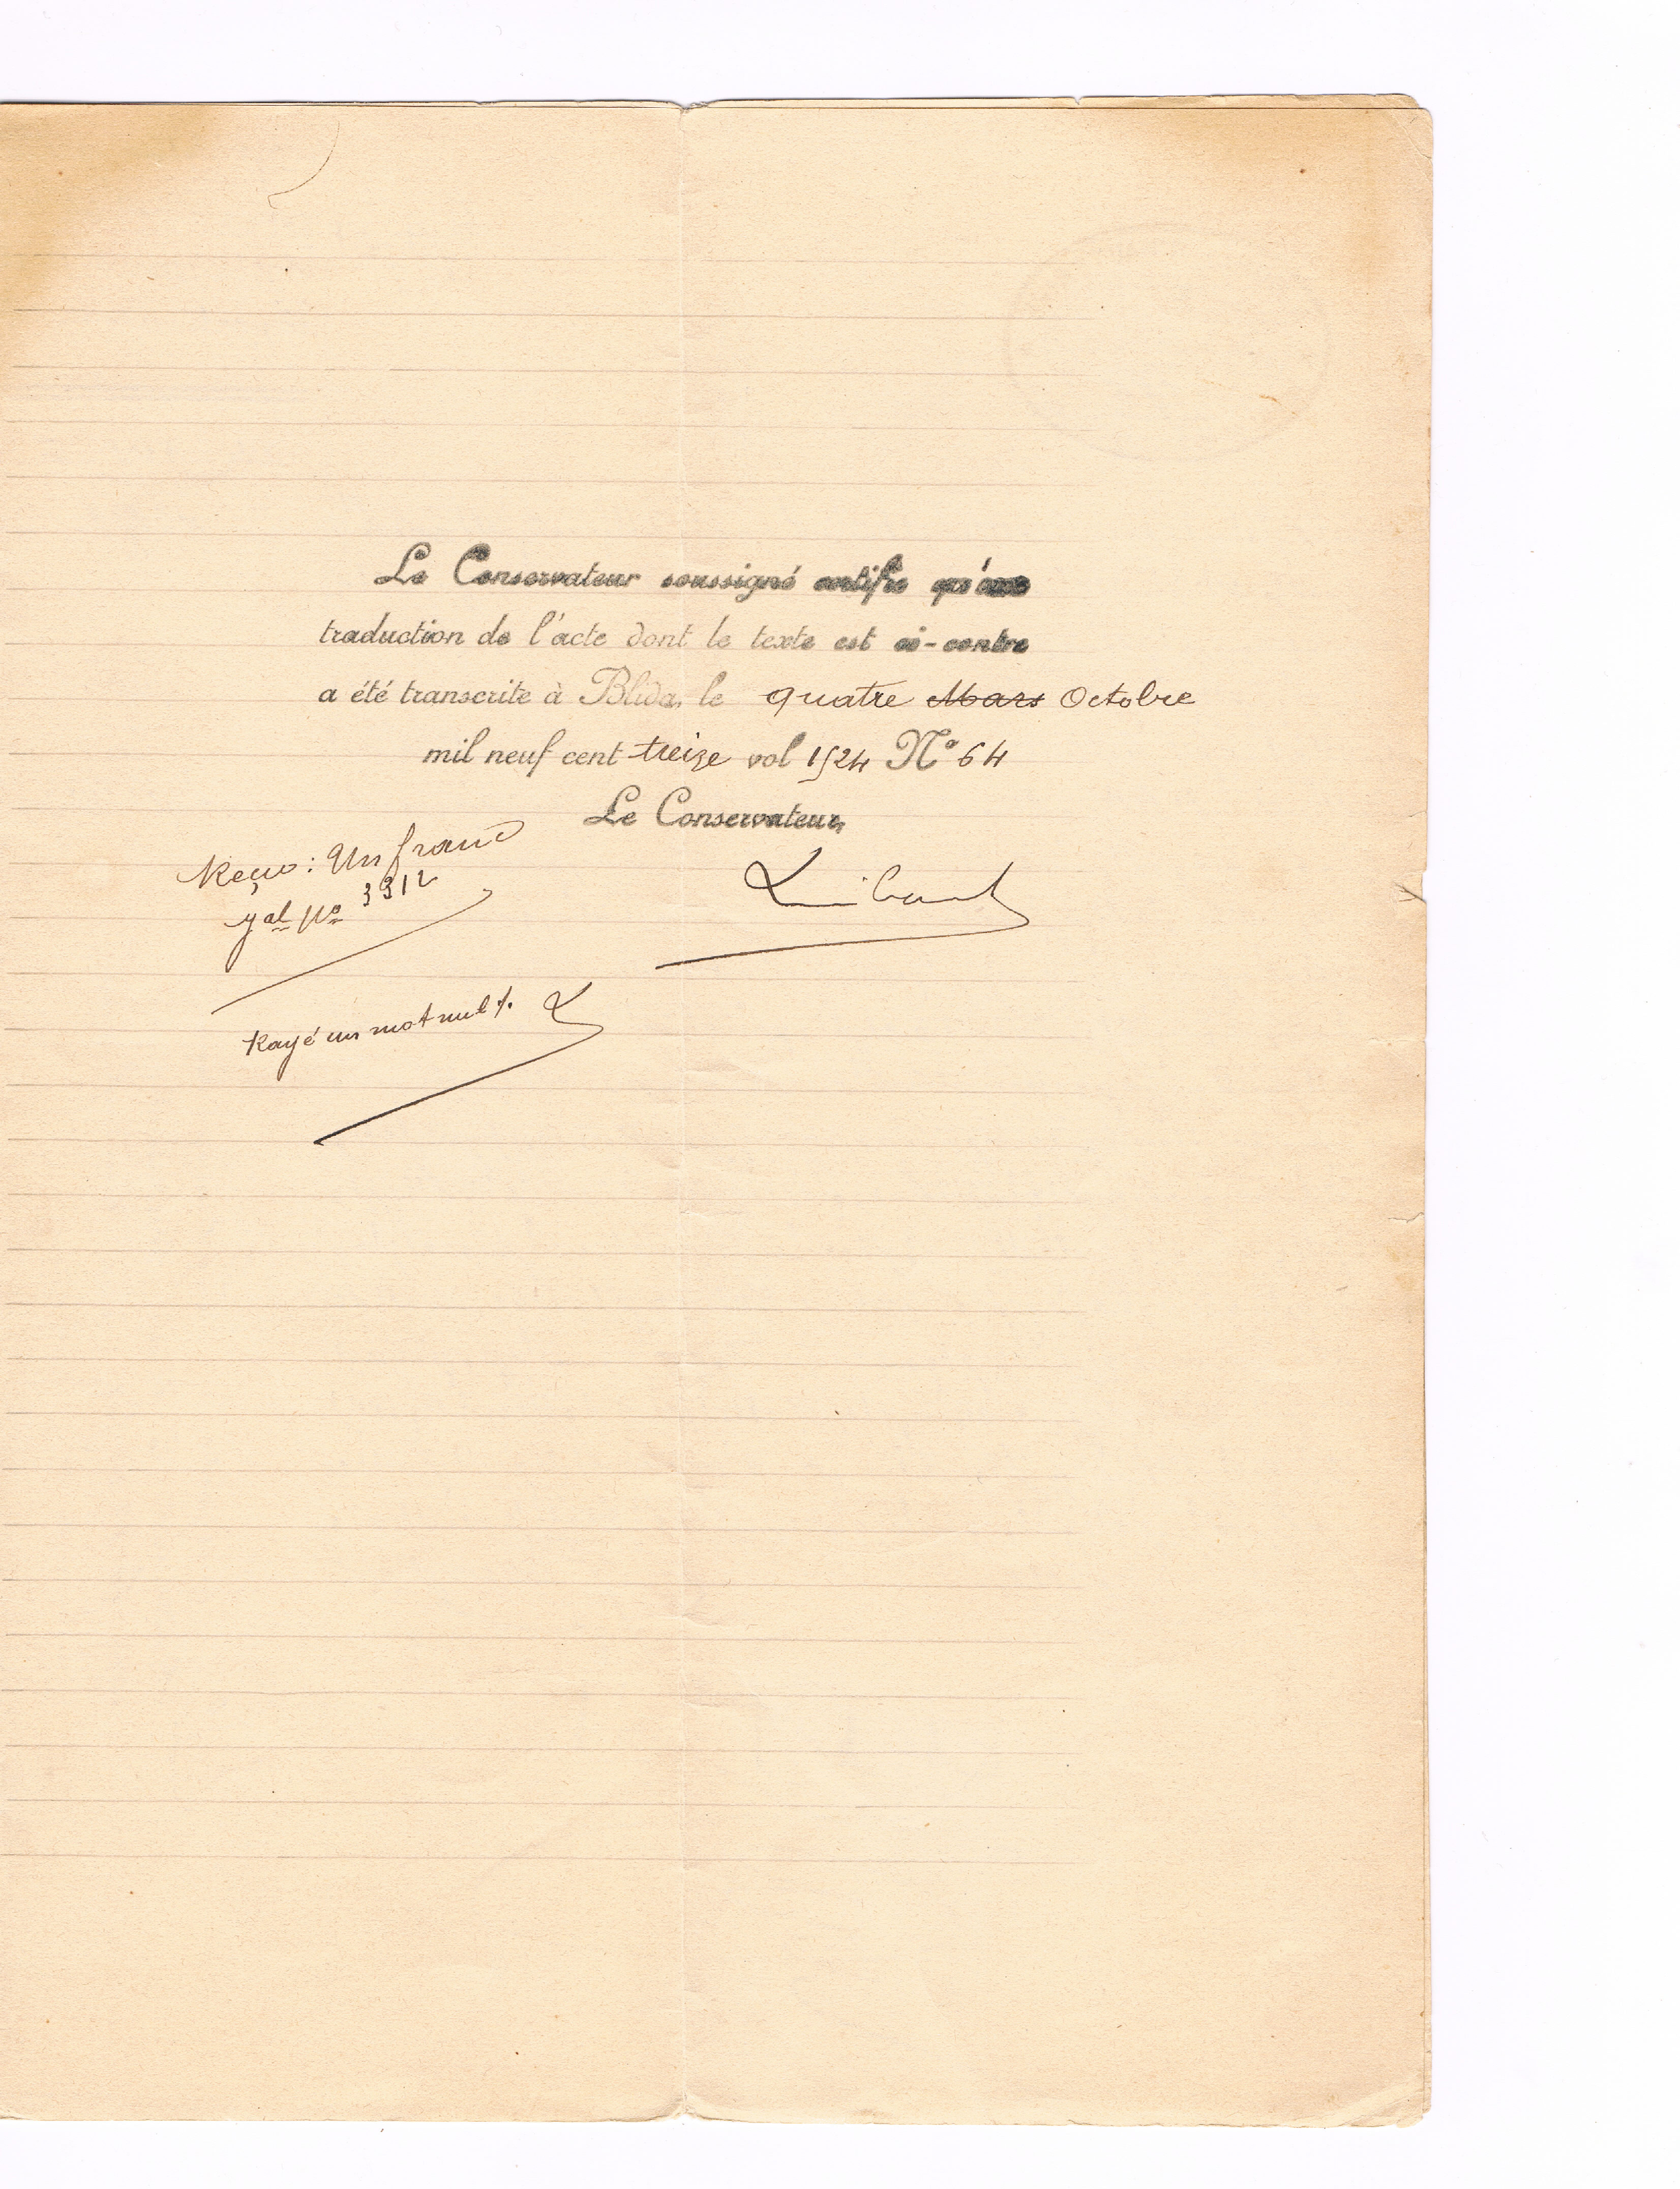 Le Conservateur soussigné certifie qu'une
traduction de l'acte dont le texte est ci-contre
a été transcrite à Blida, le quatre Mars Octobre
mil neuf cent treize vol 1524 N° 64
Le Conservateur,
Reçu : Un franc
gal No 3312
Rayé un mot nul